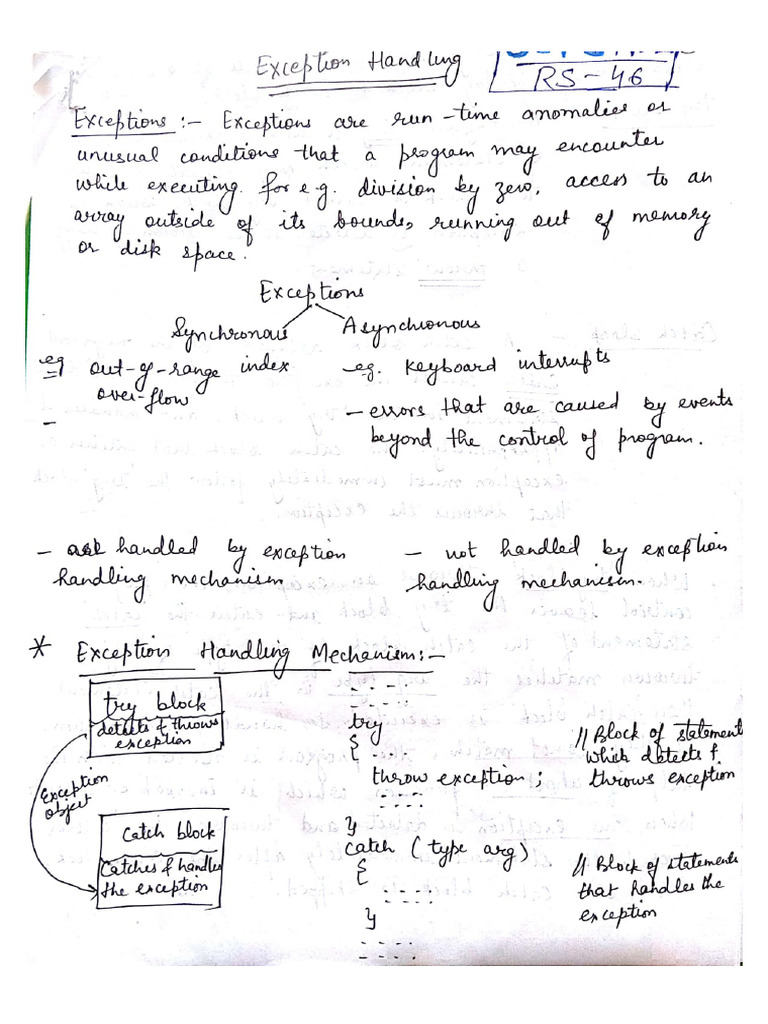 Exception Handling
RS-46
Exceptions :- Exceptions are run-time anomalies or
unusual conditions that a program may encounter
while executing. for e.g. division by zero, access to an
array outside of its bounds, running out of memory
or disk space.
Exceptions
Synchronous
Asynchronous
eg out-of-range index
over-flow
-
-eg. keyboard interrupts
- errors that are caused by events
beyond the control of program.
- handled by exception
handling mechanism
- not handled by exception
handling mechanism.
* Exception Handling Mechanism:-
try block
detects & throws
exception
Exception
object
Catch block
Catches & handles
the exception
- - - -
try
{ - - -
throw exception;
- - - -
}
catch (type arg)
{
- - - -
}
- - - -
- - - -
// Block of statements
which detects &
throws exception
// Block of statements
that handles the
exception